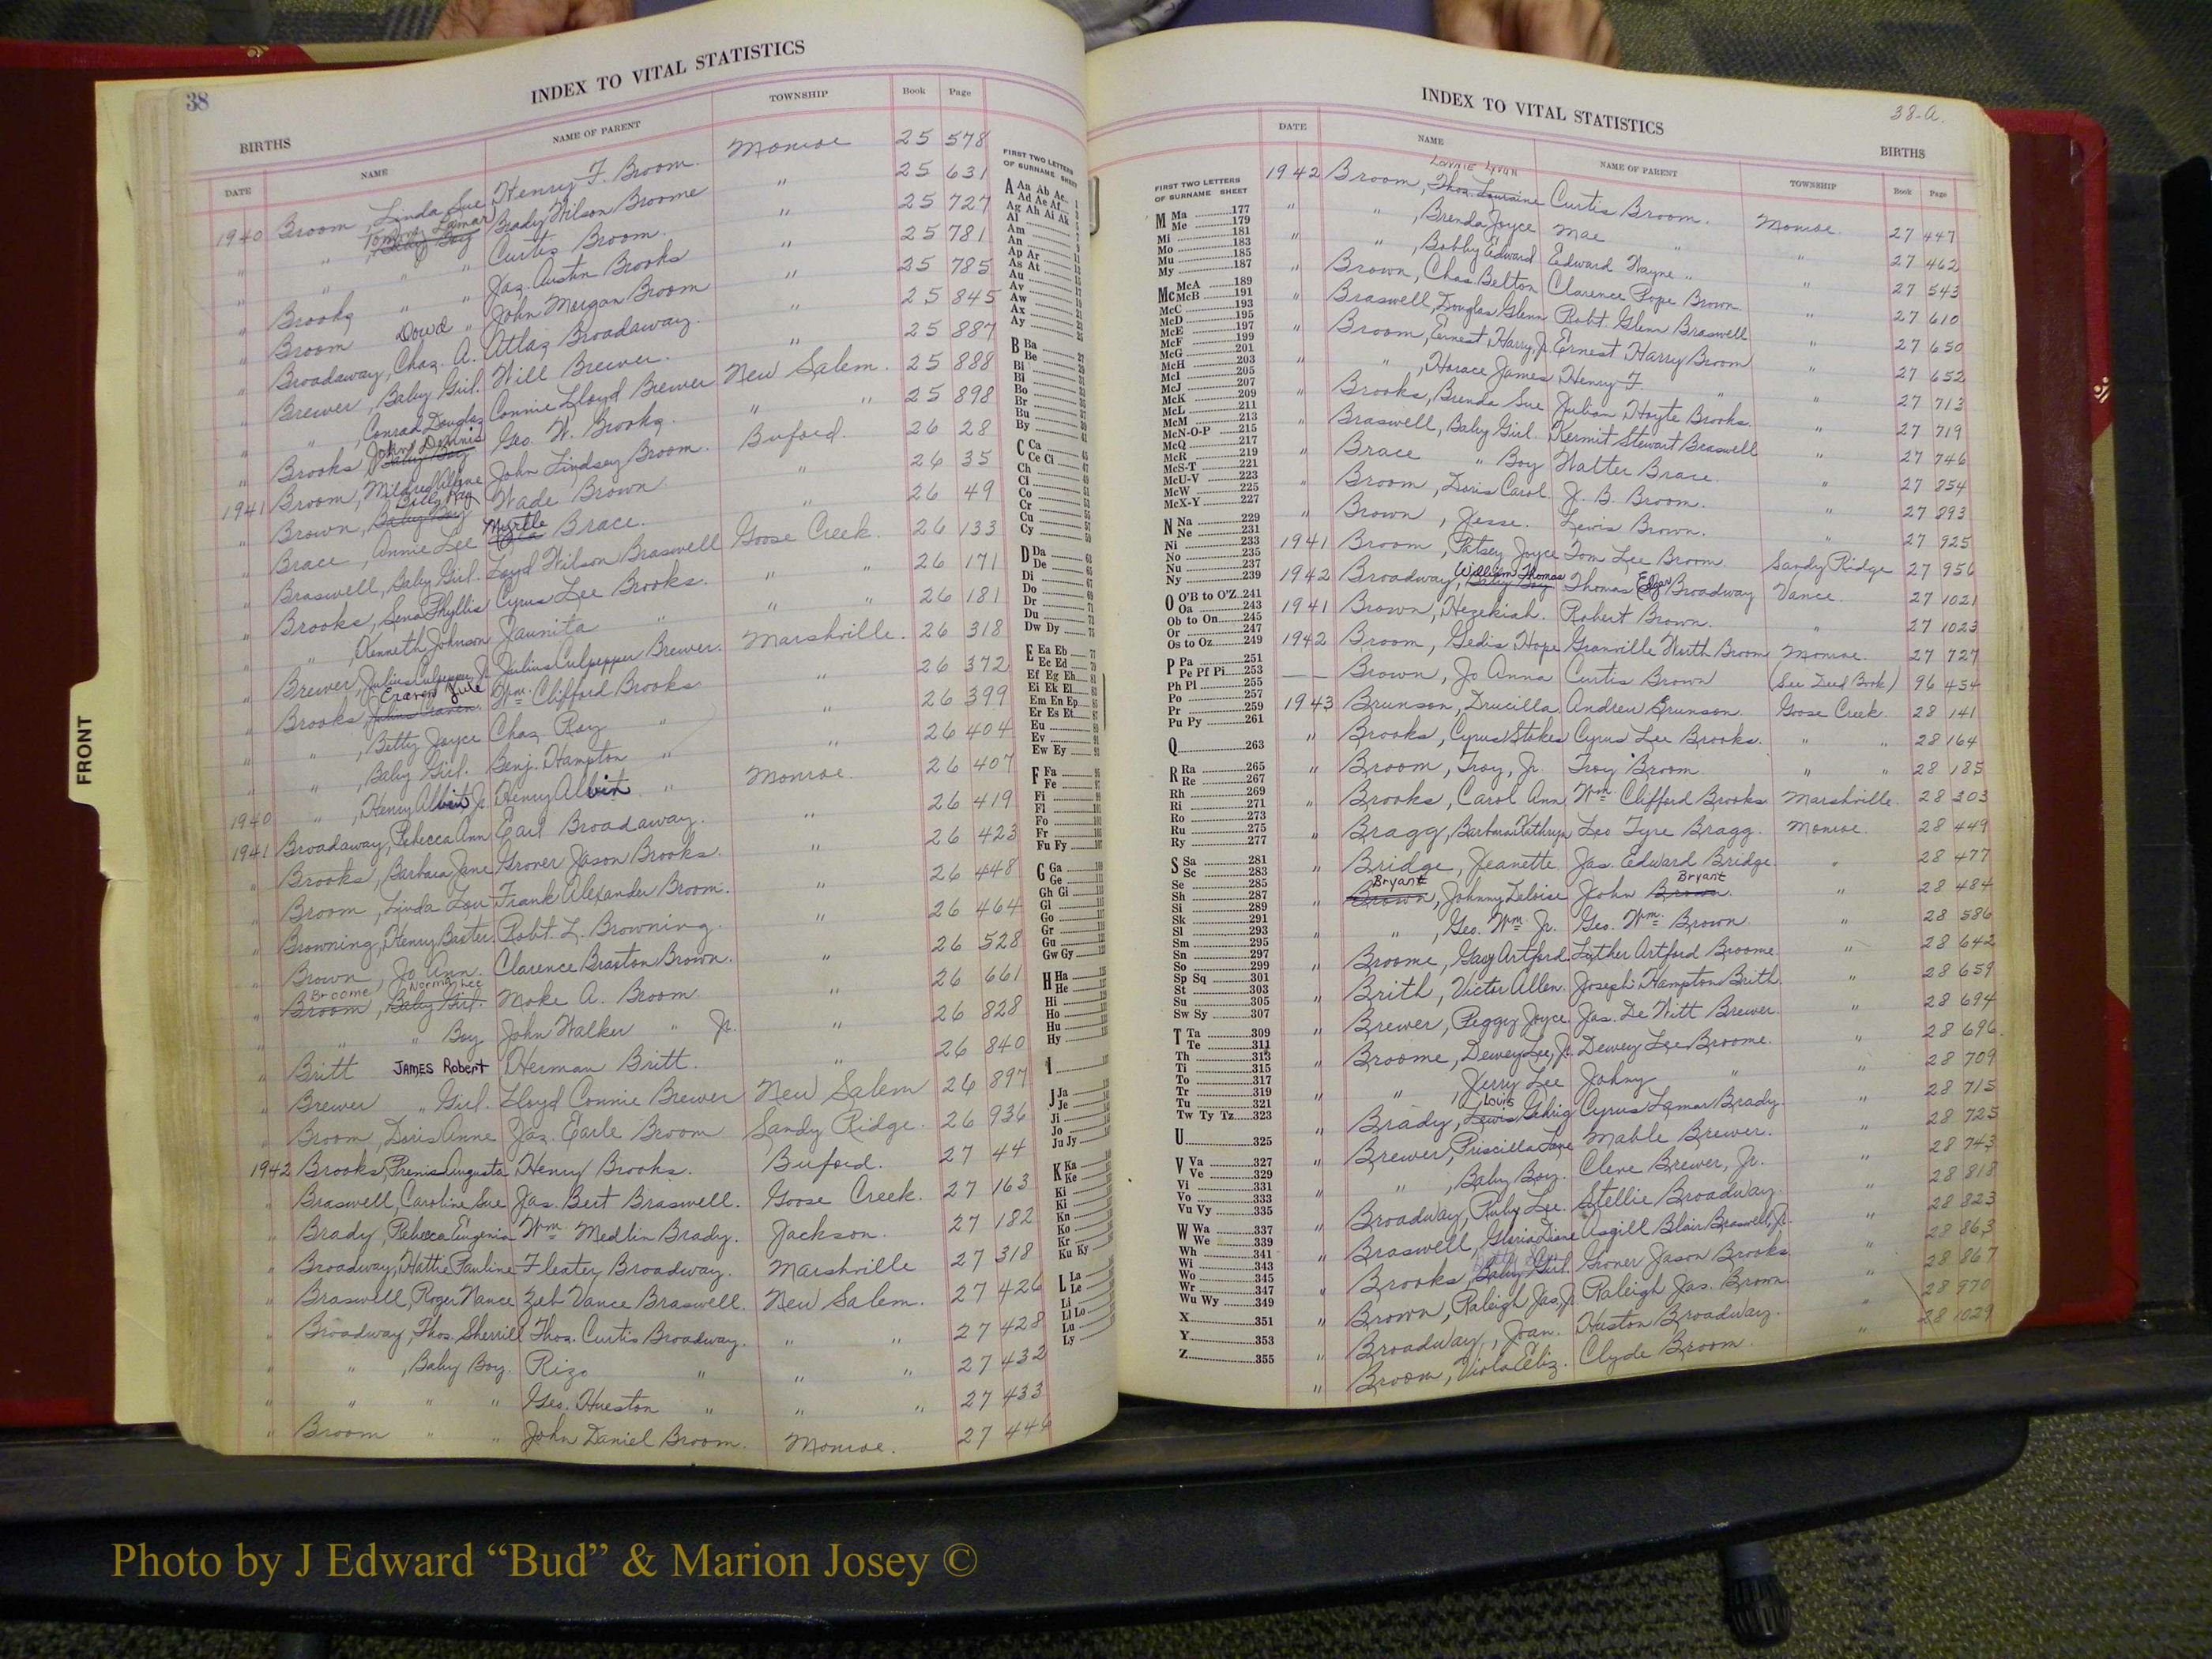 38
INDEX TO VITAL STATISTICS
BIRTHS
DATE NAME NAME OF PARENT TOWNSHIP Book Page
1940 Broom, Linda Sue Henry F. Broom. Monroe 25 578
" " , Tommy Lamar Baby Boy Brady Wilson Broome " 25 631
" " " " Curtis Broom. " 25 727
" Brooks " " Jas. Austin Brooks " 25 781
" Broom Dowd " John Morgan Broom " 25 785
" Broadaway, Chas. A. Atlas Broadaway. " 25 845
" Brewer, Baby Girl. Will Brewer. " 25 887
" " , Conrad Douglas Connie Lloyd Brewer New Salem. 25 888
" Brooks, John Dennis Baby Boy Geo. W. Brooks. " " 25 898
1941 Broom, Mildred Aline John Lindsey Broom. Buford. 26 28
" Brown, Billy Ray Baby Boy Wade Brown " 26 35
" Brace, Annie Lee Myrtle Brace. " 26 49
" Braswell, Baby Girl. Loyd Wilson Braswell Goose Creek. 26 133
" Brooks, Sena Phyllis Cyrus Lee Brooks. " " 26 171
" " , Kenneth Johnson Jaunita " " " 26 181
" Brewer, Julius Culpepper Jr. Julius Culpepper Brewer. Marshville. 26 318
" Brooks, Craven Jule Julius Craven. Wm. Clifford Brooks " 26 372
" " , Betty Joyce Chas. Ray " " 26 399
" " , Baby Girl. Benj. Hampton " " 26 404
1940 " , Henry Albert, Jr. Henry Albert " Monroe. 26 407
1941 Broadaway, Rebecca Ann Earl Broadaway. " 26 419
" Brooks, Barbara Jane Grover Jason Brooks. " 26 423
" Broom, Linda Lou Frank Alexander Broom. " 26 448
" Browning, Henry Baxter. Robt. L. Browning. " 26 464
" Brown, Jo Ann. Clarence Braxton Brown. " 26 528
" Broome Broom, Norma Lee Baby Girl. Moke A. Broom " 26 661
" " " Boy John Walker " Jr. " 26 828
" Britt JAMES Robert Herman Britt. " 26 840
" Brewer " Girl. Lloyd Connie Brewer New Salem 26 897
" Broom, Doris Anne Jas. Earle Broom Sandy Ridge. 26 936
1942 Brooks, Prenis Augusta Henry Brooks. Buford. 27 44
" Braswell, Caroline Sue Jas. Bert Braswell. Goose Creek. 27 163
" Brady, Rebecca Eugenia Wm. Medlin Brady. Jackson. 27 182
" Broadway, Hattie Pauline Fleatey Broadway. Marshville 27 318
" Braswell, Roger Vance Zeb Vance Braswell. New Salem. 27 426
" Broadway, Thos. Sherrill Thos. Curtis Broadway. " " 27 428
" " , Baby Boy. Rizo " " " 27 432
" " " " Geo. Hueston " " " 27 433
" Broom " " John Daniel Broom. Monroe. 27 446
FIRST TWO LETTERS
OF SURNAME SHEET
A Aa Ab Ac
Ad Ae Af
Ag Ah Ai Ak
Al
Am
An
Ap Ar
As At
Au
Av
Aw
Ax
Ay
B Ba
Be
Bi
Bl
Bo
Br
Bu
By
C Ca
Ce Ci
Ch
Cl
Co
Cr
Cu
Cy
D Da
De
Di
Do
Dr
Du
Dw Dy
E Ea Eb
Ec Ed
Ef Eg Eh
Ei Ek El
Em En Ep
Er Es Et
Eu
Ev
Ew Ey
F Fa
Fe
Fi
Fl
Fo
Fr
Fu Fy
G Ga
Ge
Gh Gi
Gl
Go
Gr
Gu
Gw Gy
H Ha
He
Hi
Ho
Hu
Hy
I
J Ja
Je
Ji
Jo
Ju Jy
K Ka
Ke
Ki
Kl
Kn
Ko
Kr
Ku Ky
L La
Le
Li
Ll Lo
Lu
Ly
INDEX TO VITAL STATISTICS
38-a.
BIRTHS
DATE NAME NAME OF PARENT TOWNSHIP Book Page
1942 Broom, Lonnie Lynn Thos. Louraine Curtis Broom. Monroe. 27 447
" " , Brenda Joyce Mae " " 27 462
" " , Bobby Edward Edward Wayne " " 27 543
" Brown, Chas. Belton Clarence Pope Brown " 27 610
" Braswell, Douglas Glenn Robt. Glenn Braswell " 27 650
" Broom, Ernest Harry, Jr. Ernest Harry Broom " 27 652
" " , Horace James Henry F. " " 27 713
" Brooks, Brenda Sue Julian Hoyte Brooks. " 27 719
" Braswell, Baby Girl. Kermit Stewart Braswell " 27 746
" Brace " Boy Walter Brace. " 27 854
" Broom, Doris Carol J. B. Broom. " 27 893
" Brown, Jesse. Lewis Brown. " 27 925
1941 Broom, Patsey Joyce Tom Lee Broom. Sandy Ridge 27 956
1942 Broadway, William Thomas Baby Boy Thomas Edgar Broadway Vance. 27 1021
1941 Brown, Hezekiah. Robert Brown. " 27 1023
1942 Broom, Gedis Hope Granville Worth Broom Monroe. 27 727
— — Brown, Jo Anna Curtis Brown (See Deed Book) 96 454
1943 Brunson, Drucilla. Andrew Brunson. Goose Creek. 28 141
" Brooks, Cyrus Stokes Cyrus Lee Brooks. " " 28 164
" Broom, Troy, Jr. Troy Broom. " " 28 185
" Brooks, Carol Ann Wm. Clifford Brooks Marshville. 28 303
" Bragg, Barbara Kathryn Leo Tyre Bragg. Monroe 28 449
" Bridge, Jeanette. Jas. Edward Bridge. " 28 477
" Bryant Brown, Johnny Deloise John Bryant Brown. " 28 484
" " , Geo. Wm. Jr. Geo. Wm. Brown " 28 586
" Broome, Gary Artford. Luther Artford Broome. " 28 642
" Brith, Victor Allen. Joseph Hampton Brith. " 28 659
" Brewer, Peggy Joyce. Jas. De Witt Brewer. " 28 694
" Broome, Dewey Lee, Jr. Dewey Lee Broome. " 28 696
" " , Jerry Lee Johny " " 28 709
" Brady, Louis Lewis Gehrig Cyrus Lamar Brady. " 28 715
" Brewer, Priscilla Jane Mable Brewer. " 28 725
" " , Baby Boy. Cleve Brewer, Jr. " 28 743
" Broadway, Ruby Lee. Stellie Broadway. " 28 818
" Braswell, Gloria Diane Asgill Blair Braswell, Jr. " 28 823
" Brooks, Baby Girl. Grover Jason Brooks " 28 863
" Brown, Raleigh Jas, Jr. Raleigh Jas. Brown " 28 867
" Broadway, Joan. Huston Broadway. " 28 970
" Broom, Viola Eliz. Clyde Broom. " 28 1029
FIRST TWO LETTERS
OF SURNAME SHEET
M Ma 177
Me 179
Mi 181
Mo 183
Mu 185
My 187
Mc McA 189
McB 191
McC 193
McD 195
McE 197
McF 199
McG 201
McH 203
McI 205
McJ 207
McK 209
McL 211
McM 213
McN-O-P 215
McQ 217
McR 219
McS-T 221
McU-V 223
McW 225
McX-Y 227
N Na 229
Ne 231
Ni 233
No 235
Nu 237
Ny 239
O O'B to O'Z 241
Oa 243
Ob to On 245
Or 247
Os to Oz 249
P Pa 251
Pe Pf Pi 253
Ph Pl 255
Po 257
Pr 259
Pu Py 261
Q 263
R Ra 265
Re 267
Rh 269
Ri 271
Ro 273
Ru 275
Ry 277
S Sa 281
Sc 283
Se 285
Sh 287
Si 289
Sk 291
Sl 293
Sm 295
Sn 297
So 299
Sp Sq 301
St 303
Su 305
Sw Sy 307
T Ta 309
Te 311
Th 313
Ti 315
To 317
Tr 319
Tu 321
Tw Ty Tz 323
U 325
V Va 327
Ve 329
Vi 331
Vo 333
Vu Vy 335
W Wa 337
We 339
Wh 341
Wi 343
Wo 345
Wr 347
Wu Wy 349
X 351
Y 353
Z 355
FRONT
Photo by J Edward “Bud” & Marion Josey ©